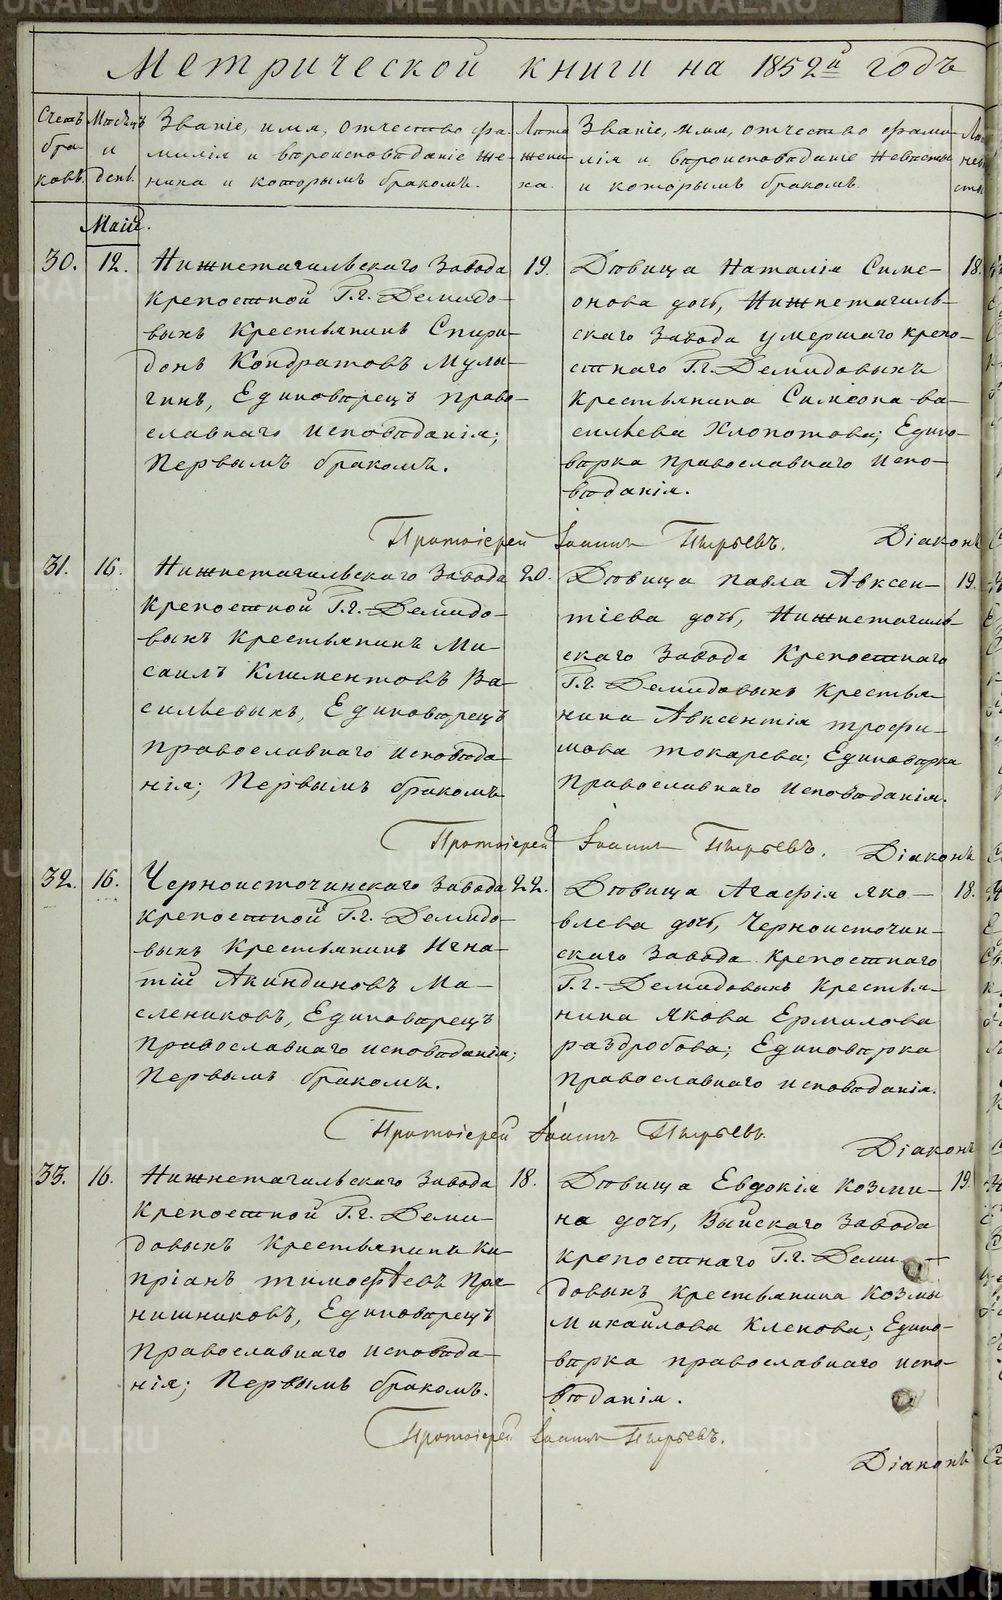 Метрической книги на 1852й годъ
Счетъ браковъ.
Мѣсяцъ и день.
Званіе, имя, отчество, фа-
милія и вѣроисповѣданіе же-
ниха и которымъ бракомъ.
Лѣта жениха.
Званіе, имя, отчество фами-
лія и вѣроисповѣданіе невѣсты
и которымъ бракомъ.
Май.
30. 12.
Нижнетагильскаго Завода
крепостной Г.г. Демидо-
выхъ Крестьянинъ Спири-
донъ Кондратовъ Мулы-
гинъ, Единовѣрецъ право-
славнаго исповѣданія;
Первымъ бракомъ.
19.
Дѣвица Наталія Симе-
онова дочь, Нижнетагиль-
скаго Завода умершаго крепо-
стнаго Г.г. Демидовыхъ
крестьянина Симеона Ва-
сильева Хлопотова; Едино-
вѣрка православнаго испо-
вѣданія.
18.
Протоіерей Іоаннъ Пырьевъ. Діаконъ
31. 16.
Нижнетагильскаго Завода
крепостной Г.г. Демидо-
выхъ крестьянинъ Ми-
саилъ Климентовъ Ва-
сильевыхъ, Единовѣрецъ
православнаго исповѣда-
нія; Первымъ бракомъ
20.
Дѣвица Павла Авксен-
тіева дочь, Нижнетагиль-
скаго Завода Крепостнаго
Г.г. Демидовыхъ крестья-
нина Авксентія трофи-
мова токарева; Единовѣрка
Православнаго исповѣданія.
19.
Протоіерей Іоаннъ Пырьевъ. Діаконъ
32. 16.
Черноисточинскаго Завода
крепостной Г.г. Демидо-
выхъ Крестьянинъ Игна-
тій Акиндиновъ Ма-
слениковъ, Единовѣрецъ
православнаго исповѣданія;
Первымъ бракомъ.
22.
Дѣвица Агафія Яко-
влева дочь, Черноисточин-
скаго Завода крепостнаго
Г.г. Демидовыхъ крестья-
нина Якова Ермилова
раздробова; Единовѣрка
православнаго исповѣданія.
18.
Протоіерей Іоаннъ Пырьевъ. Діаконъ
33. 16.
Нижнетагильскаго Завода
крепостной Г.г. Деми-
довыхъ крестьянина Ки-
пріанъ тимофѣевъ Пря-
нишниковъ, Единовѣрецъ
православнаго исповѣда-
нія; Первымъ бракомъ.
18.
Дѣвица Евдокія Козми-
на дочь, Выйскаго Завода
крепостнаго Г.г. Деми-
довыхъ крестьянина Козмы
Михайлова Клепова; Едино-
вѣрка православнаго испо-
вѣданія.
19.
Протоіерей Іоаннъ Пырьевъ.
Діаконъ
METRIKI.GASO-URAL.RU